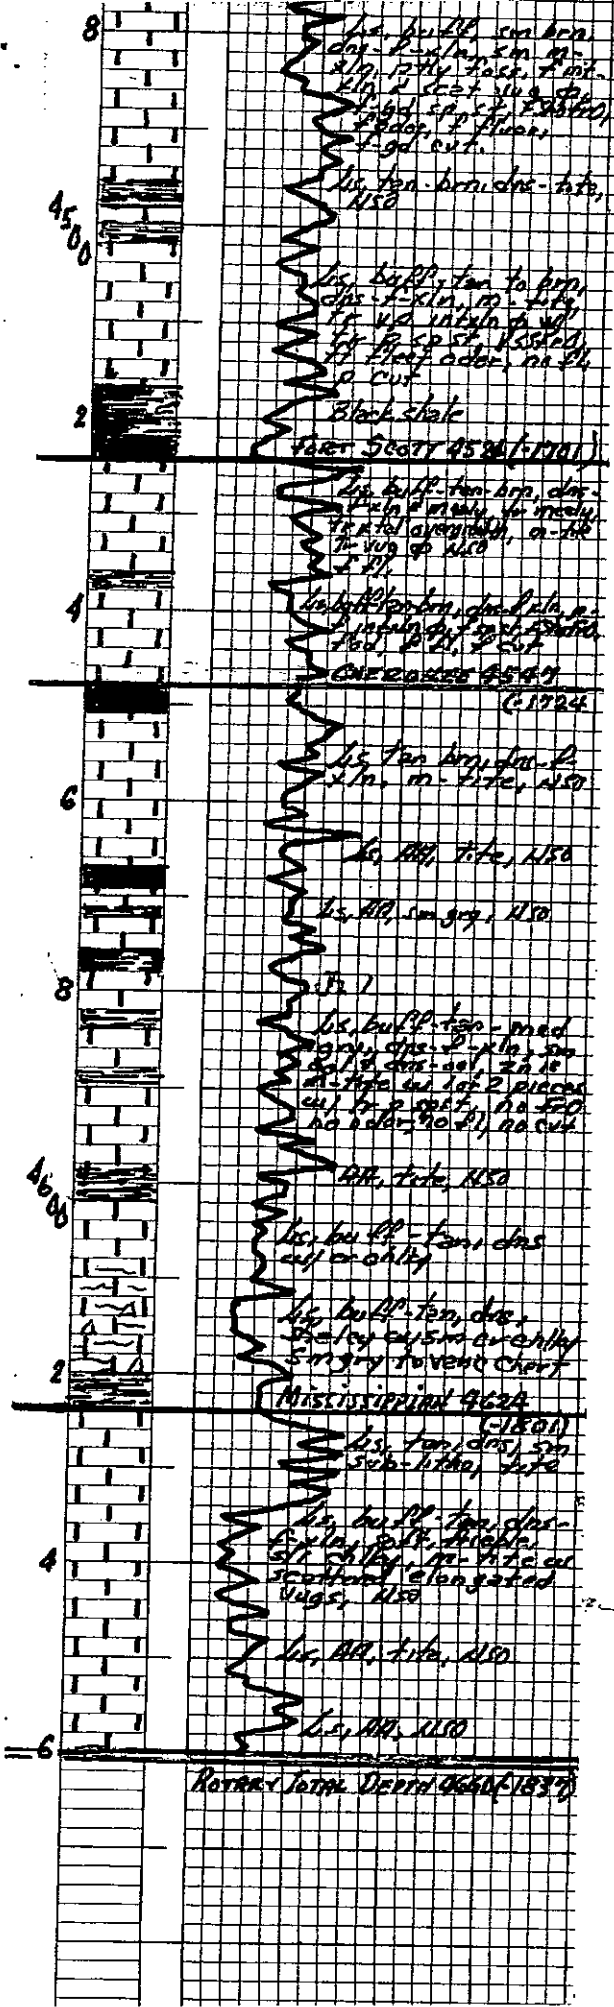 8
Ls, buff, sm brn,
dns-f-xln, sm m-
xln, ptly foss, f int-
xln & scat vug ϕ,
f-gd sp st, FSO
f odor, f fluor,
f-gd cut.
Ls, tan-brn, dns-tite,
NSO
4500
Ls, buff-tan to brn,
dns-f-xln, m-tite,
tr v.p intxln ϕ w/
tr p sp st, VSSFO,
ft fleet odor, no fl,
p cut
Black shale
2
FORT SCOTT (-1701)
Ls, buff-tan-brn, dns-
f-xln
tr xtal overgrowth, m-tite
Tr vug ϕ NSO
f fl,
4
Ls, buff-tan-brn, dns-f xln, m-
f cut
CHEROKEE 4547
(-1724
Ls, tan brn, dns-f-
xln, m-tite, NSO
6
Ls, AA, tite, NSO
Ls, AA, sm gry, NSO
8
Ls, buff-tan-med
gry, dns-f-xln, sm
m-tite w/ 1 or 2 pieces
w/ tr p sp st, no FSO
no odor, no fl, no cut
AA, tite, NSO
4600
Ls, buff-tan, dns
w/ cr chlky
Ls, buff-tan, dns,
shaley w/ sm cr chlky
sm gry foven chert
2
MISSISSIPPIAN 4624
(-1801)
Ls, tan, dns, sm
sub-litho, tite
Ls, buff-tan, dns-
f-xln, soft, friable,
sli chlky, m-tite w/
scattered elongated
vugs, NSO
4
Ls, AA, tite, NSO
Ls, AA, NSO
6
ROTARY TOTAL DEPTH 4660 (-1837)